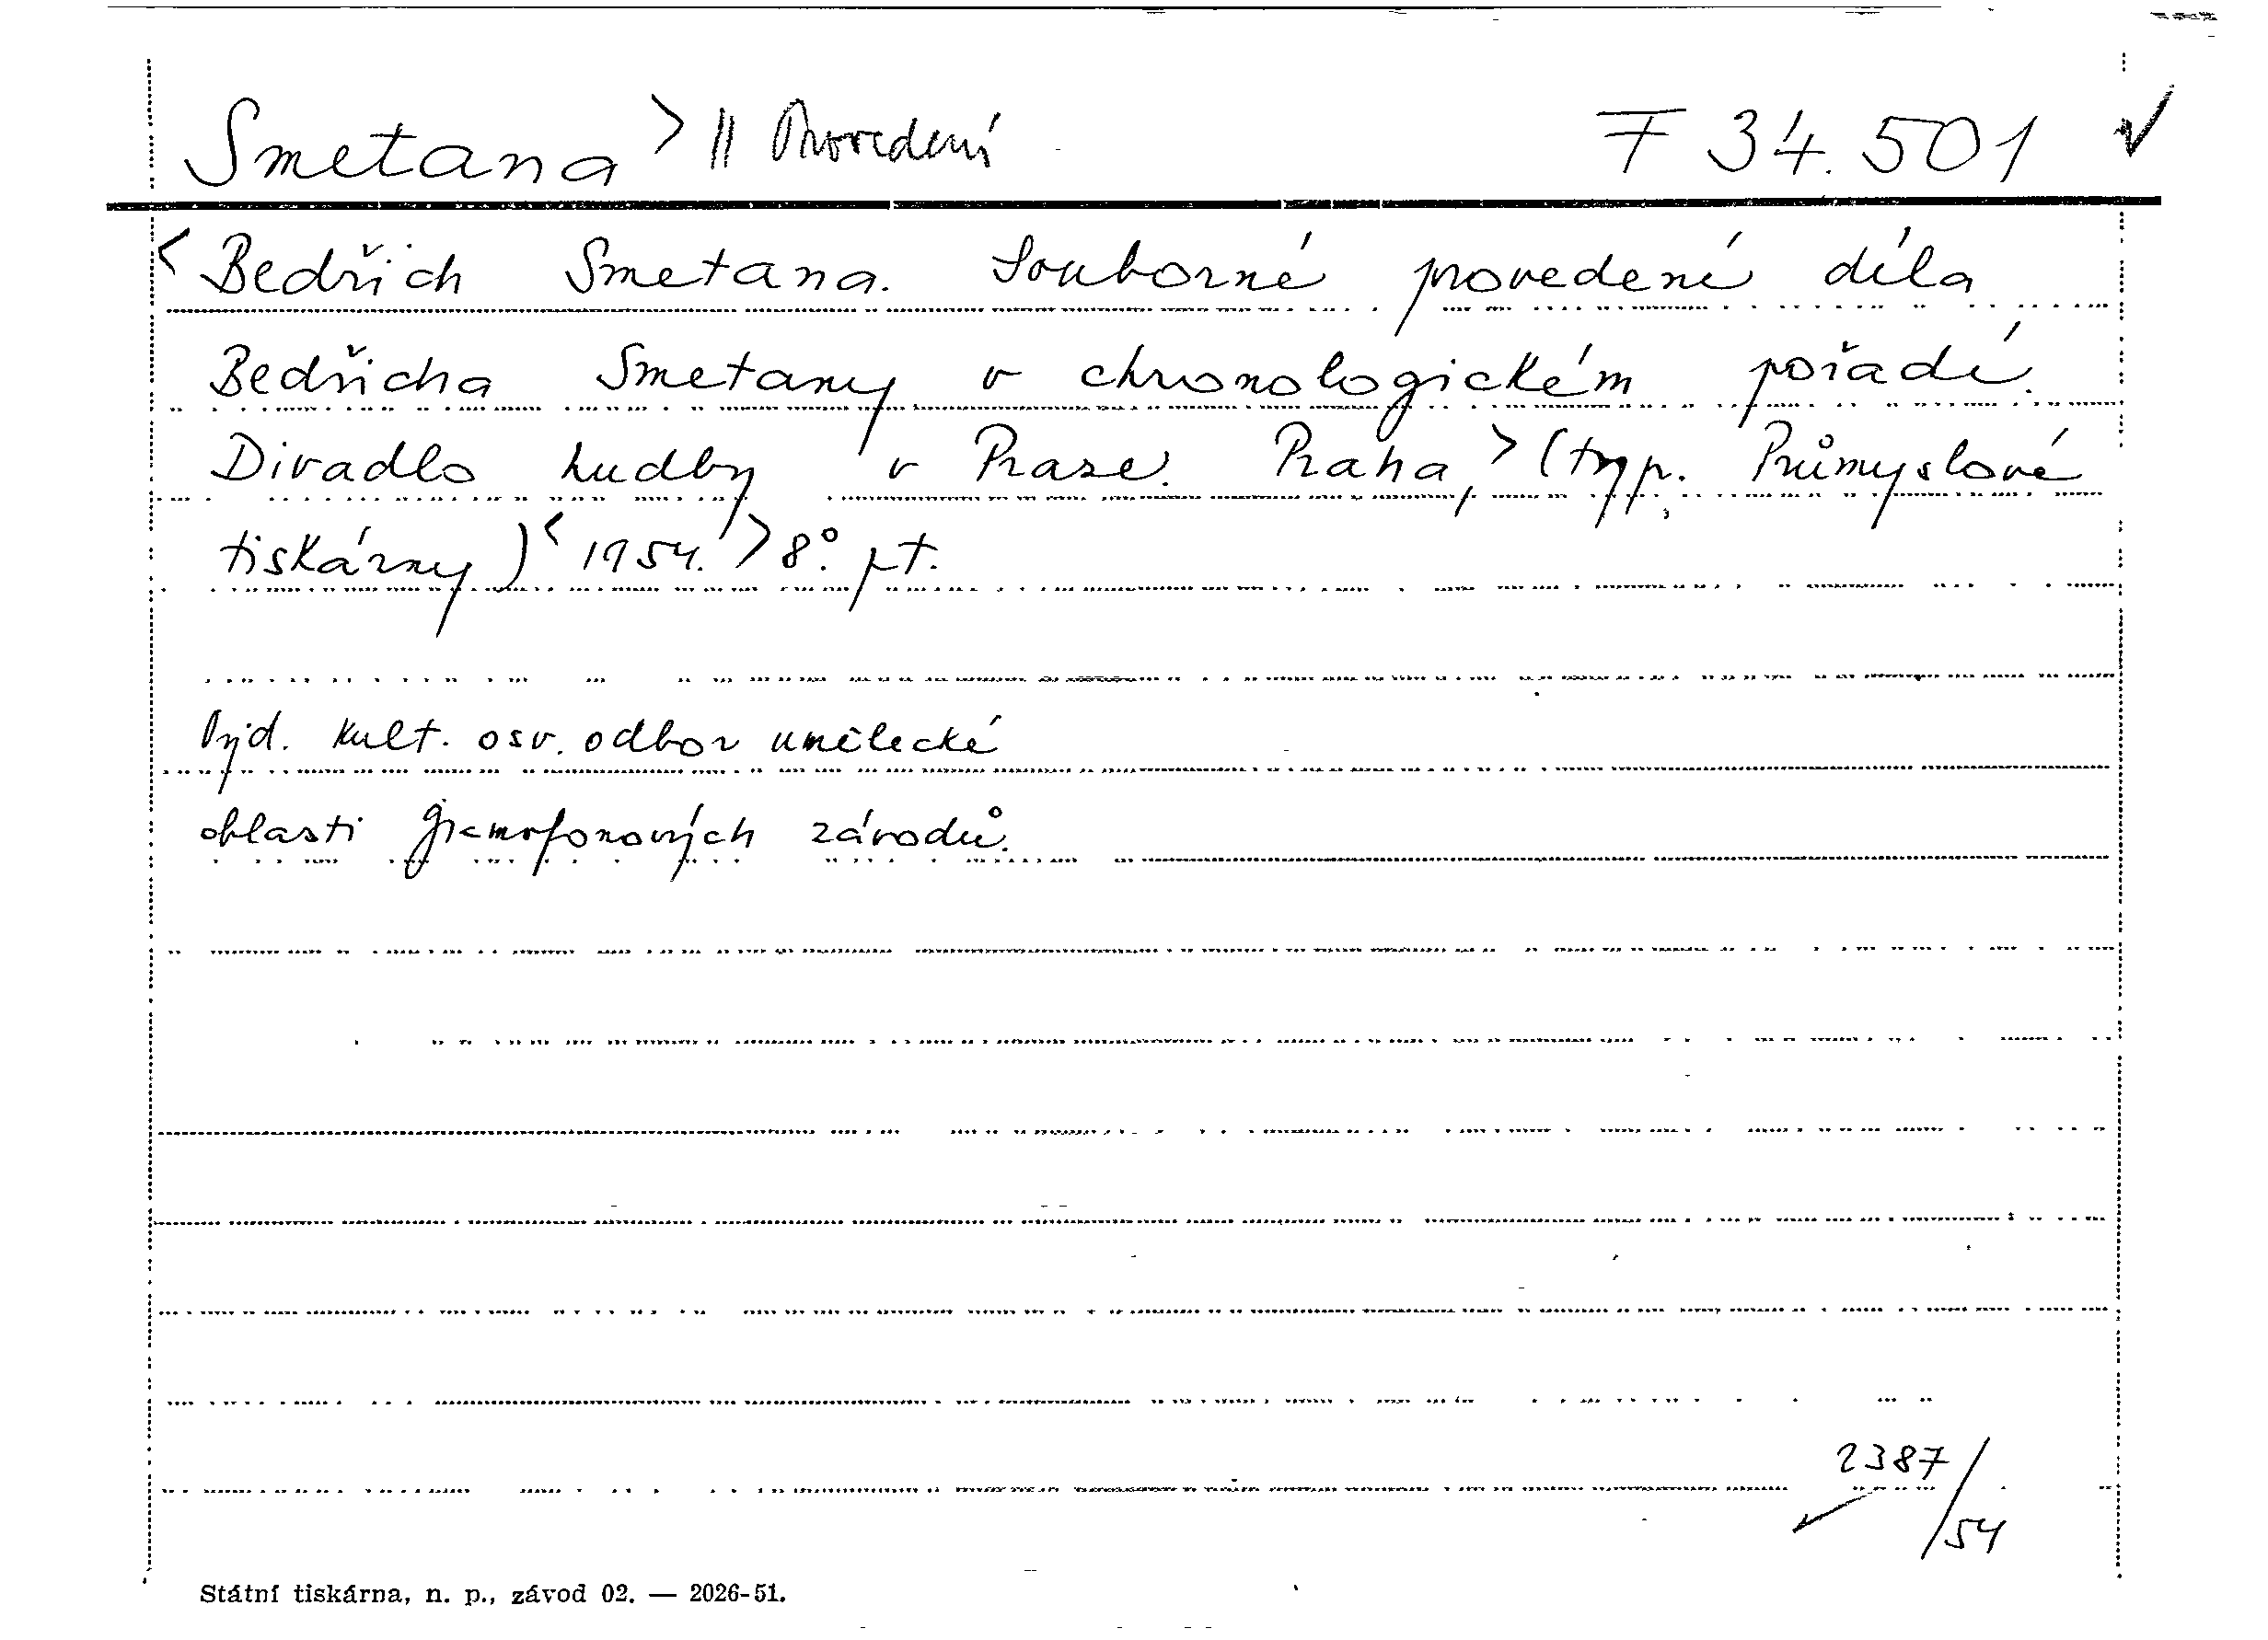 Smetana > || Provedení F 34.501 ✓
< Bedřich Smetana. Souborné provedení díla
Bedřicha Smetany v chronologickém pořadí.
Divadlo hudby v Praze. Praha, > (typ. Průmyslové
tiskárny) < 1954. > 8°. pt.
Vyd. kult. osv. odbor umělecké
oblasti Gramofonových závodů.
2387/54
Státní tiskárna, n. p., závod 02. — 2026-51.